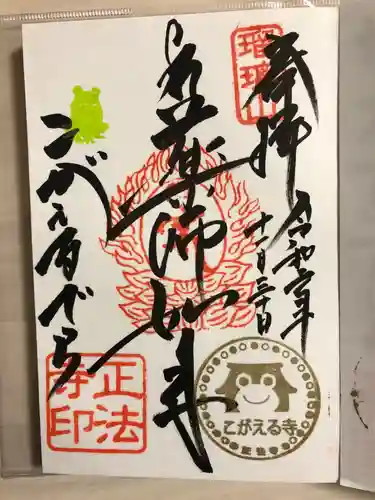 奉拝
瑠璃山
令和 年
十一月 日
薬師如来
こがえる
正法寺印
こがえる寺
正法寺